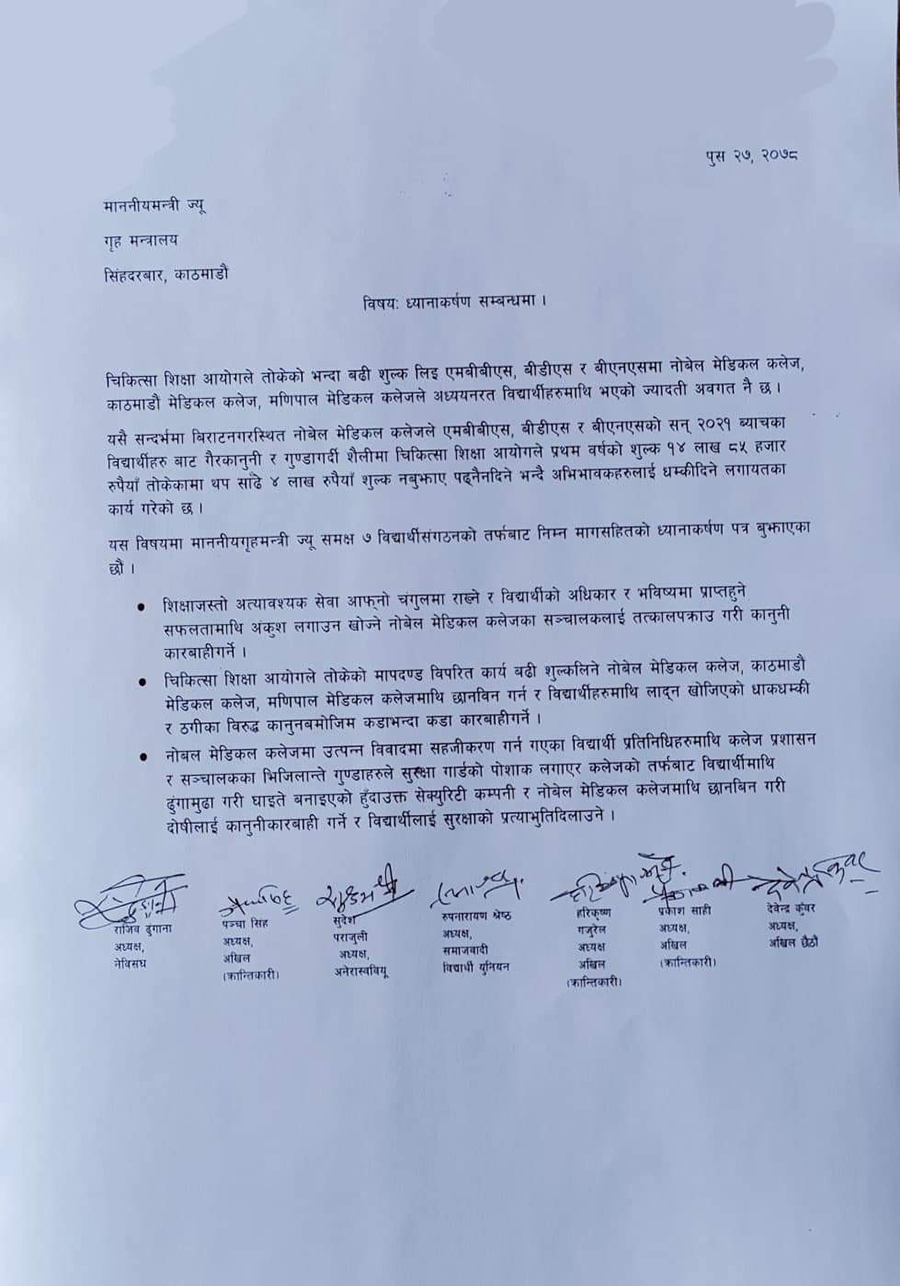 पुस २७, २०७८
माननीयमन्त्री ज्यू
गृह मन्त्रालय
सिंहदरबार, काठमाडौं
विषय: ध्यानाकर्षण सम्बन्धमा ।
चिकित्सा शिक्षा आयोगले तोकेको भन्दा बढी शुल्क लिइ एमबीबीएस, बीडीएस र बीएनएसमा नोबेल मेडिकल कलेज,
काठमाडौ मेडिकल कलेज, मणिपाल मेडिकल कलेजले अध्ययनरत विद्यार्थीहरुमाथि भएको ज्यादती अवगत नै छ ।
यसै सन्दर्भमा बिराटनगरस्थित नोबेल मेडिकल कलेजले एमबीबीएस, बीडीएस र बीएनएसको सन् २०२१ ब्याचका
विद्यार्थीहरु बाट गैरकानुनी र गुण्डागर्दी शैलीमा चिकित्सा शिक्षा आयोगले प्रथम वर्षको शुल्क १४ लाख ८५ हजार
रुपैयाँ तोकेकामा थप साढे ४ लाख रुपैयाँ शुल्क नबुझाए पढ्नैनदिने भन्दै अभिभावकहरुलाई धम्कीदिने लगायतका
कार्य गरेको छ ।
यस विषयमा माननीयगृहमन्त्री ज्यू समक्ष ७ विद्यार्थीसंगठनको तर्फबाट निम्न मागसहितको ध्यानाकर्षण पत्र बुझाएका
छौं ।
• शिक्षाजस्तो अत्यावश्यक सेवा आफ्नो चंगुलमा राख्ने र विद्यार्थीको अधिकार र भविष्यमा प्राप्तहुने
सफलतामाथि अंकुश लगाउन खोज्ने नोबेल मेडिकल कलेजका सञ्चालकलाई तत्कालपक्राउ गरी कानुनी
कारबाहीगर्ने ।
• चिकित्सा शिक्षा आयोगले तोकेको मापदण्ड विपरित कार्य बढी शुल्कलिने नोबेल मेडिकल कलेज, काठमाडौ
मेडिकल कलेज, मणिपाल मेडिकल कलेजमाथि छानविन गर्न र विद्यार्थीहरुमाथि लाद्न खोजिएको धाकधम्की
र ठगीका विरुद्ध कानुनबमोजिम कडाभन्दा कडा कारबाहीगर्ने ।
• नोबल मेडिकल कलेजमा उत्पन्न विवादमा सहजीकरण गर्न गएका विद्यार्थी प्रतिनिधिहरुमाथि कलेज प्रशासन
र सञ्चालकका भिजिलान्ते गुण्डाहरुले सुरक्षा गार्डको पोशाक लगाएर कलेजको तर्फबाट विद्यार्थीमाथि
ढुंगामुढा गरी घाइते बनाइएको हुँदाउक्त सेक्युरिटी कम्पनी र नोबेल मेडिकल कलेजमाथि छानबिन गरी
दोषीलाई कानुनीकारबाही गर्ने र विद्यार्थीलाई सुरक्षाको प्रत्याभुतिदिलाउने ।
राजिव ढुंगाना
अध्यक्ष,
नेविसंघ
पञ्चा सिंह
अध्यक्ष,
अखिल
(क्रान्तिकारी)
सुदेश
पराजुली
अध्यक्ष,
अनेरास्ववियू
रुपनारायण श्रेष्ठ
अध्यक्ष,
समाजवादी
विद्यार्थी युनियन
हरिकृष्ण
गजुरेल
अध्यक्ष
अखिल
(क्रान्तिकारी)
प्रकाश साही
अध्यक्ष,
अखिल
(क्रान्तिकारी)
देवेन्द्र कुंवर
अध्यक्ष,
अखिल छैठौं